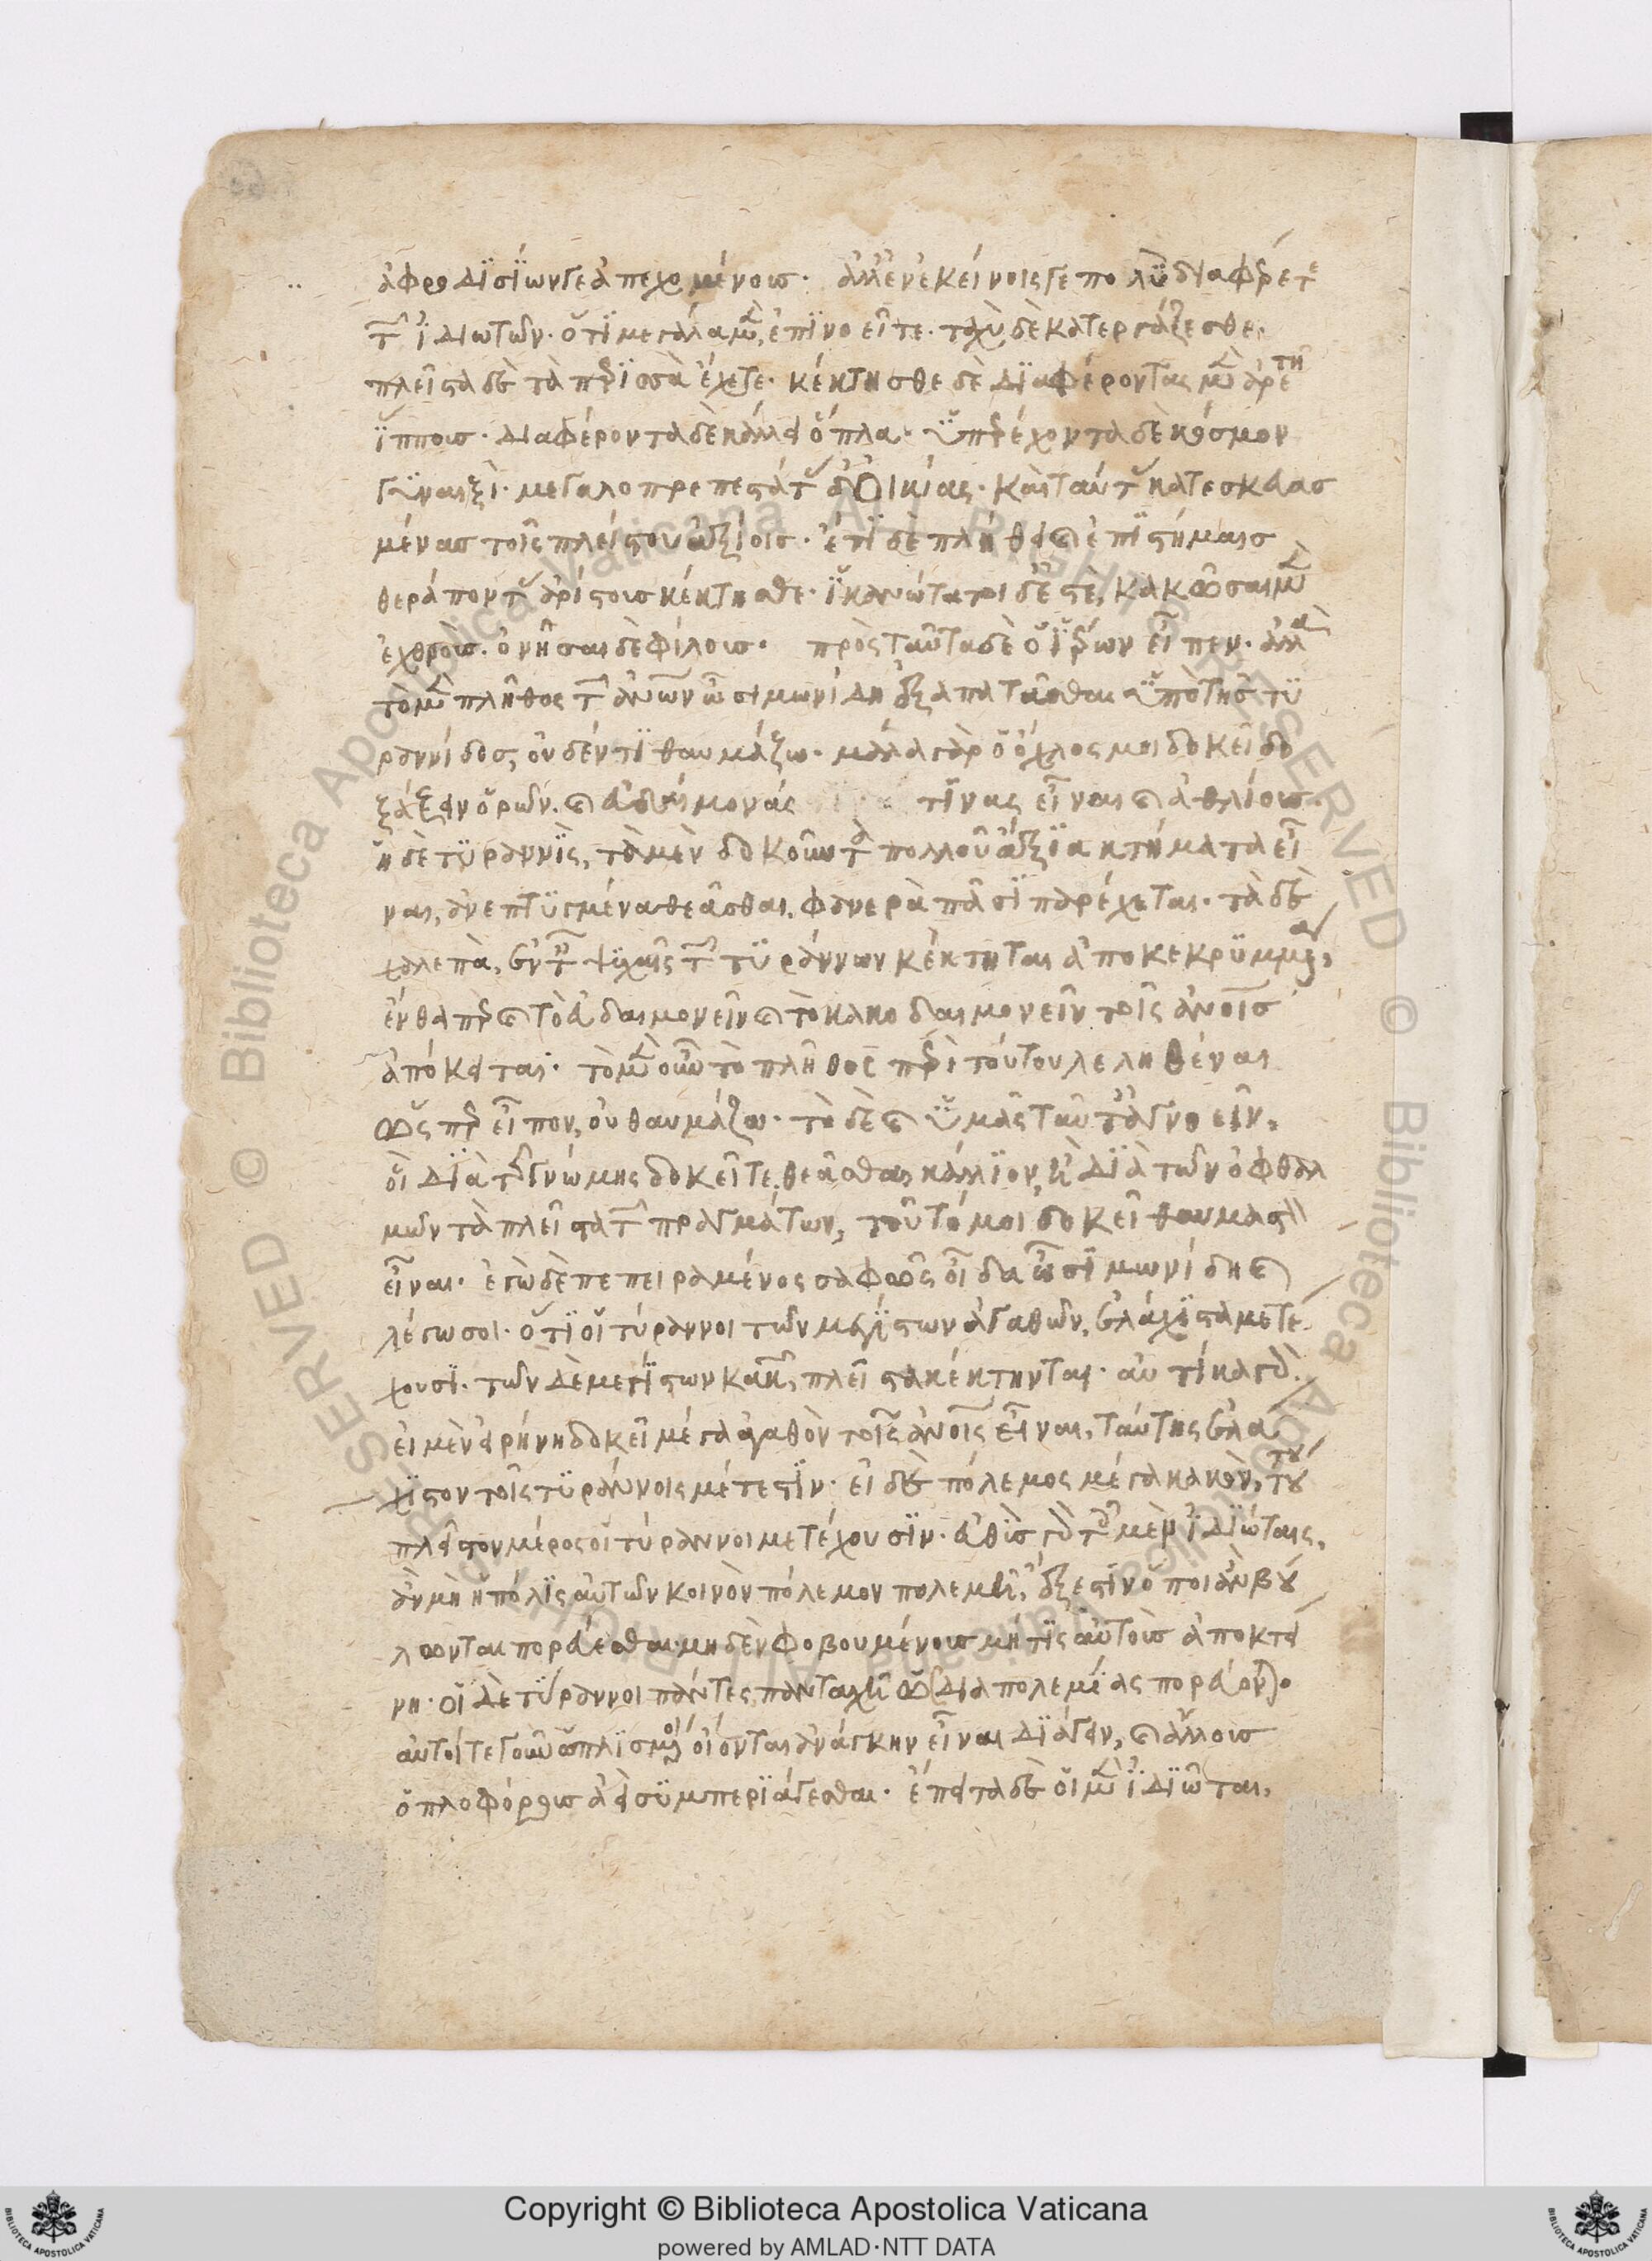 ἀφροδισΐων γε ἀπεχομένοις· ἀλλ' ἐν ἐκείνοις γε πολὺ διαφέρετε
τῶν ἰδιωτῶν· ὅτι μεγάλα μὲν ἐπινοεῖτε· ταχὺ δὲ κατεργάζεσθε,
πλεῖστα δὲ τὰ περισσὰ ἔχετε· κέκτησθε δὲ διαφέροντας μὲν ἀρετῇ
ἵπποις· διαφέροντα δὲ κάλλει ὅπλα· ὑπερέχοντα δὲ κόσμον
γυναιξὶ· μεγαλοπρεπεστάτας δ' οἰκίας· καὶ ταύτας κατεσκευασ
μένας τοῖς πλείστου ἀξίοις· ἔτι δὲ πλήθει καὶ ἐπιστήμαις
θεράποντας ἀρίστοις κέκτησθε· ἱκανώτατοι δ' ἐστὲ, κακῶσαι μὲν
ἐχθροὺς· ὀνῆσαι δὲ φίλοις· πρὸς ταῦτα δὲ ὁ Ἱέρων εἶπεν· ἀλλὰ
τὸ μὲν πλῆθος τῶν ἀνῶν ὦ σιμωνίδη ἐξαπατᾶσθαι ὑπὸ τῆς τυ
ραννίδος, οὐδέν τι θαυμάζω· μάλα γὰρ ὁ ὄχλος μοι δοκεῖ δο
ξάζειν ὁρῶν· καὶ εὐδαίμονάς τινας εἶναι καὶ ἀθλίους·
ἡ δὲ τυραννὶς, τὰ μὲν δοκοῦντα πολλοῦ ἄξια κτήματα εἶ
ναι, ἀνεπτυγμένα θεᾶσθαι, φανερὰ πᾶσι παρέχεται· τὰ δὲ
χαλεπὰ, ἐν ταῖς ψυχαῖς τῶν τυράννων κέκτηται ἀποκεκρυμμένα,
ἔνθαπερ καὶ τὸ εὐδαιμονεῖν καὶ τὸ κακοδαιμονεῖν τοῖς ἀνοις
ἀπόκειται· τὸ μὲν οὖν τὸ πλῆθος περὶ τούτου λεληθέναι
ὥσπερ εἶπον, οὐ θαυμάζω· τὸ δὲ καὶ ὑμᾶς ταῦτ' ἀγνοεῖν,
οἳ διὰ τῆς γνώμης δοκεῖτε θεᾶσθαι κάλλιον, ἢ διὰ τῶν ὀφθαλ
μῶν τὰ πλεῖστα τῶν πραγμάτων, τοῦτό μοι δοκεῖ θαυμαστὸν
εἶναι· ἐγὼ δὲ πεπειραμένος σαφῶς οἶδα ὦ σιμωνίδη καὶ
λέγω σοι· ὅτι οἱ τύραννοι τῶν μεγίστων ἀγαθῶν, ἐλάχιστα μετέ
χουσι· τῶν δὲ μεγίστων κακῶν, πλεῖστα κέκτηνται· αὐτίκα γὰρ
εἰ μὲν εἰρήνη δοκεῖ μέγα ἀγαθὸν τοῖς ἀνοις εἶναι, ταύτης ἐλά
χιστον τοῖς τυράννοις μέτεστιν· εἰ δὲ πόλεμος μέγα κακὸν, τούτου
πλεῖστον μέρος οἱ τύραννοι μετέχουσιν· εὐθὺς γὰρ τοῖς μὲν ἰδιώταις,
ἂν μὴ ἡ πόλις αὐτῶν κοινὸν πόλεμον πολεμῇ, ἔξεστιν ὅποι ἂν βού
λωνται πορεύεσθαι· μηδὲν φοβουμένοις μή τις αὐτοὺς ἀποκτεί
νη· οἱ δὲ τύραννοι πάντες πανταχῇ ὡς διὰ πολεμίας πορεύονται·
αὐτοί τε γοῦν ὡπλισμένοι οἴονται ἀνάγκην εἶναι διάγειν, καὶ ἄλλους
ὁπλοφόρους ἀεὶ συμπεριάγεσθαι· ἔπειτα δὲ οἱ μὲν ἰδιῶται,
Copyright © Biblioteca Apostolica Vaticana
powered by AMLAD·NTT DATA